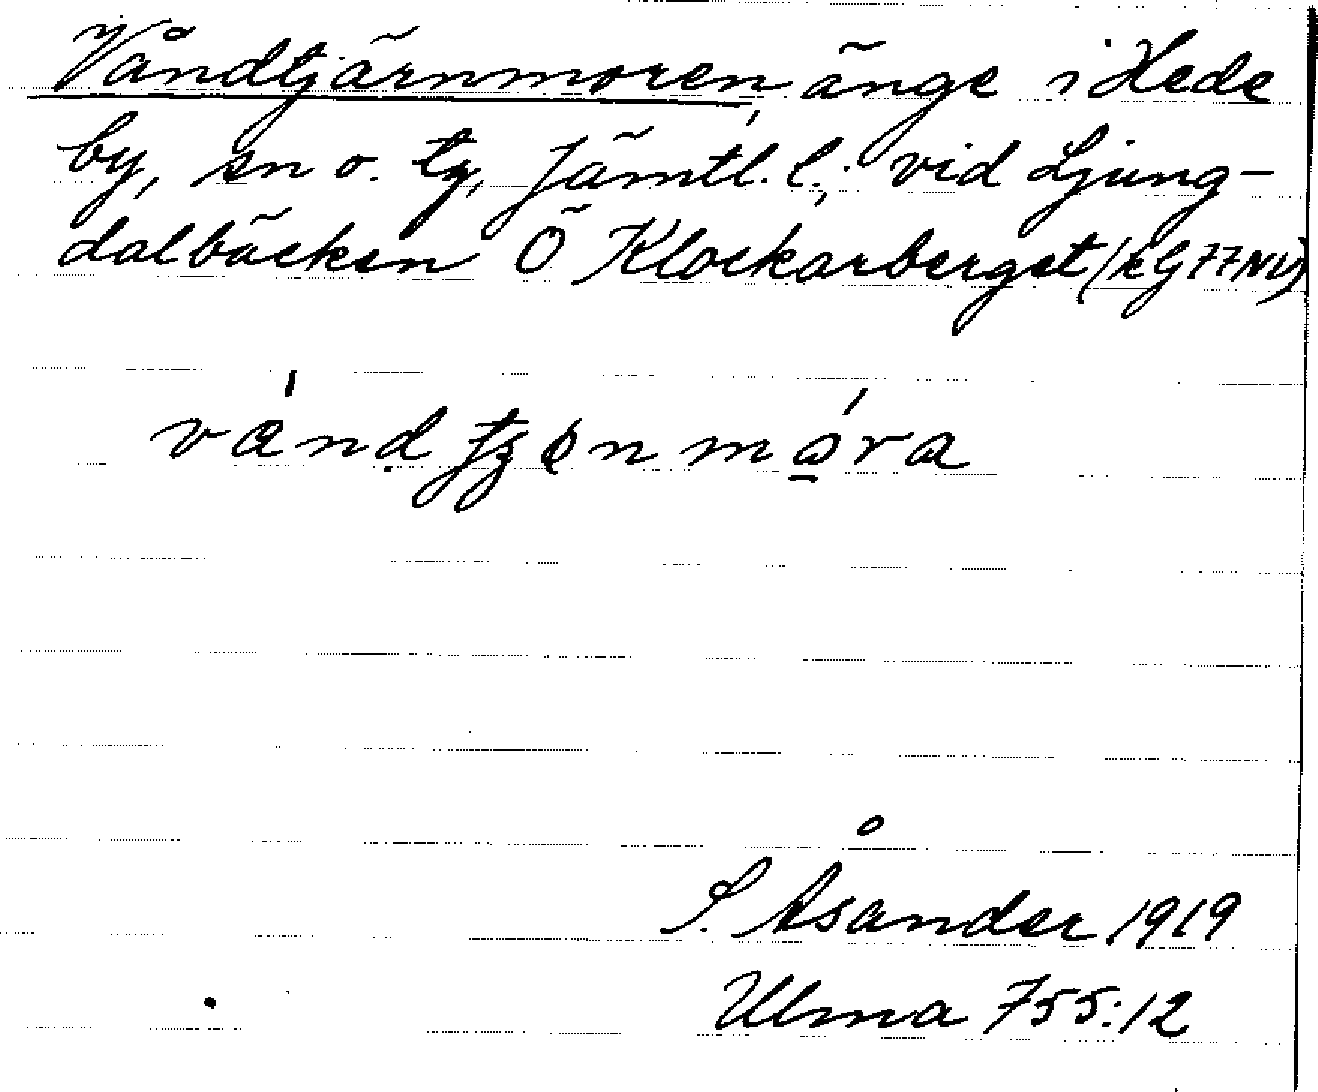 Våndtjärnmoren, änge i Hede
by, sn o. tg, Jämtl. l.; vid Ljung-
dalbäcken Ö Klockarberget (kG77NV)
vándtȷønmóra
S. Åsander 1919
Ulma 755:12